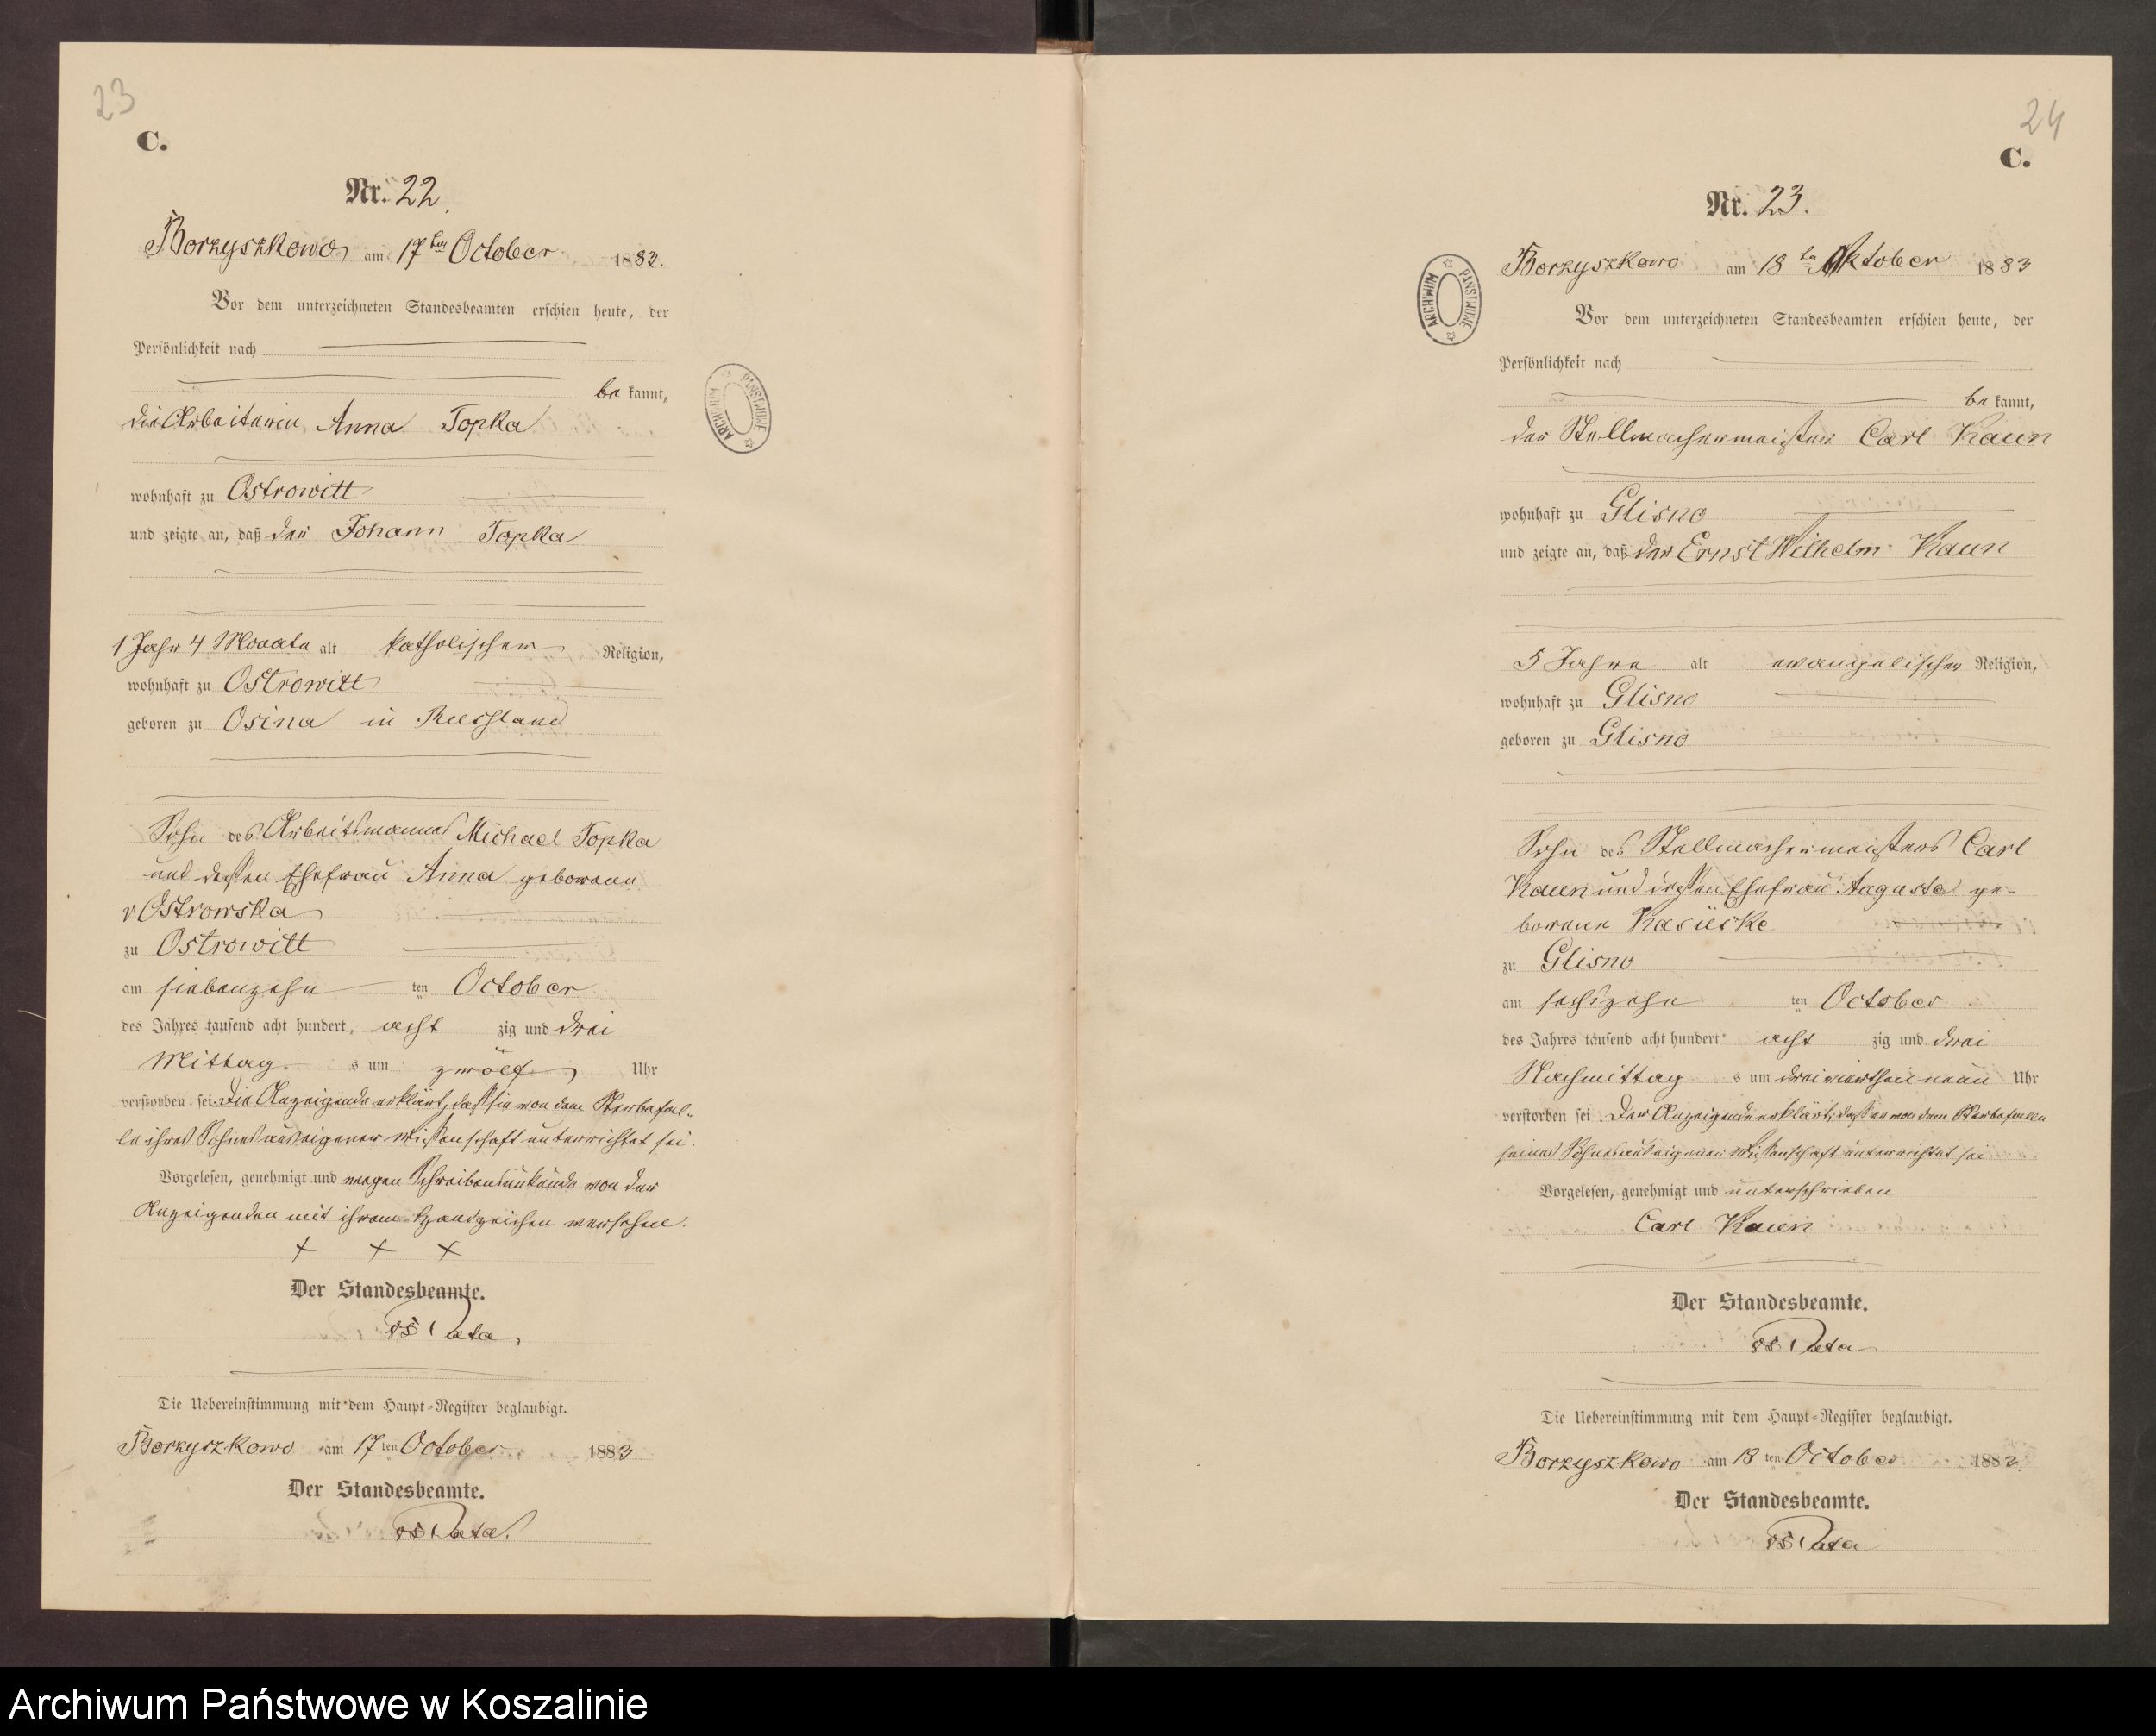 23
C.
Nr. 22.
Borzyszkowo am 17ten October 1883.
Vor dem unterzeichneten Standesbeamten erschien heute, der
Persönlichkeit nach
bekannt,
die Arbeiterin Anna Topka
wohnhaft zu Ostrowitt
und zeigte an, daß der Johann Topka
1 Jahr 4 Monate alt katholischer Religion,
wohnhaft zu Ostrowitt
geboren zu Osina in Russland
Sohn des Arbeitsmannes Michael Topka
und dessen Ehefrau Anna geborene
v Ostrowska
zu Ostrowitt
am siebenzehn ten October
des Jahres tausend acht hundert acht zig und drei
Mittag s um zwölf Uhr
verstorben sei. Die Anzeigende erklärt, daß sie von dem Sterbefal-
le ihres Sohnes aus eigener Wissenschaft unterrichtet sei.
Vorgelesen, genehmigt und wegen Schreibensunkunde von der
Anzeigenden mit ihrem Handzeichen versehen.
+ + +
Der Standesbeamte.
Die Uebereinstimmung mit dem Haupt-Register beglaubigt.
Borzyszkowo am 17ten October 1883
Der Standesbeamte.
24
C.
Nr. 23.
ARCHIWUM PAŃSTWOWE
Borzyszkowo am 18ten Oktober 1883
Vor dem unterzeichneten Standesbeamten erschien heute, der
Persönlichkeit nach
bekannt,
der Stellmachermeister Carl Kaun
wohnhaft zu Glisno
und zeigte an, daß der Ernst Wilhelm Kaun
5 Jahre alt evangelischer Religion,
wohnhaft zu Glisno
geboren zu Glisno
Sohn des Stellmachermeisters Carl
Kaun und dessen Ehefrau Auguste ge-
borene Kasüske
zu Glisno
am sechszehn ten October
des Jahres tausend acht hundert acht zig und drei
Nachmittag s um dreiviertheil neun Uhr
verstorben sei. Der Anzeigende erklärt, daß er von dem Sterbefalle
seines Sohnes aus eigener Wissenschaft unterrichtet sei
Vorgelesen, genehmigt und unterschrieben
Carl Kaun
Der Standesbeamte.
Die Uebereinstimmung mit dem Haupt-Register beglaubigt.
Borzyszkowo am 18ten October 1883.
Der Standesbeamte.
ARCHIWUM PAŃSTWOWE
Archiwum Państwowe w Koszalinie